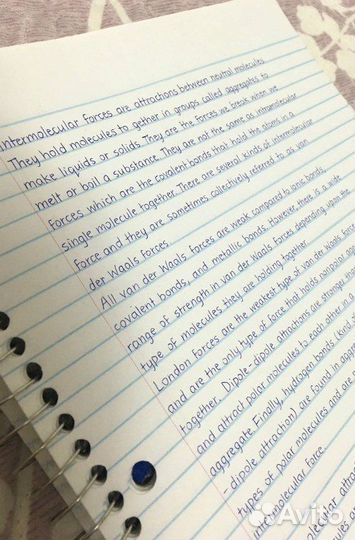 Intermolecular forces are attractions between neutral molecules
They hold molecules to gether in groups called aggregates to
make liquids or solids. They are the forces we break when we
melt or boil a substance. They are not the same as intramolecular
forces which are the covalent bonds that hold the atoms in a
single molecule together. There are several kinds of intermolecular
force and they are sometimes collectively referred to as van
der Waals forces.
All van der Waals forces are weak compared to ionic bonds,
covalent bonds, and metallic bonds. However, there is a wide
range of strength in van der Waals forces depending upon the
type of molecules they are holding together.
London forces are the weakest type of van der Waals force
and are the only type of force that holds nonpolar
together. Dipole-dipole attractions are stronger
and attract polar molecules to each other in
aggregate. Finally, hydrogen bonds
-dipole attraction) are found in
types of polar molecules and are
intermolecular force.
Avito